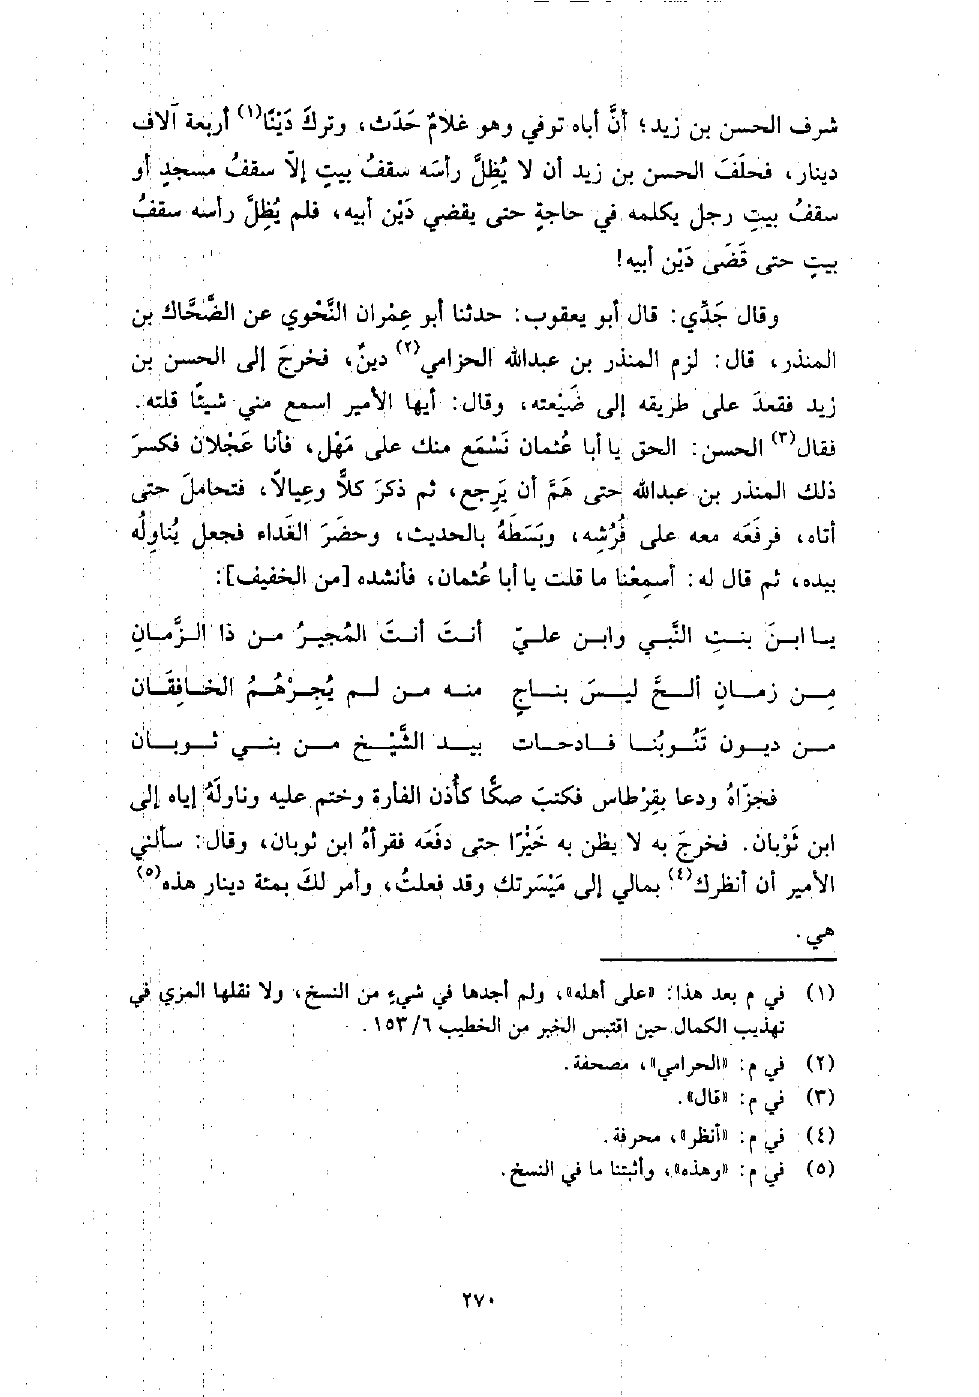 شرف الحسن بن زيد؛ أنَّ أباه توفي وهو غلامٌ حَدَث، وتركَ دَيْنًا(١) أربعة آلاف
دينار، فحلَفَ الحسن بن زيد أن لا يُظِلَّ رأسَه سقفُ بيتٍ إلاّ سقفُ مسجدٍ أو
سقفُ بيتِ رجل يكلمه في حاجةٍ حتى يقضي دَيْن أبيه، فلم يُظِلَّ رأسه سقفُ
بيتٍ حتى قَضَى دَيْن أبيه!
وقال جَدِّي: قال أبو يعقوب: حدثنا أبو عِمْران النَّحْوي عن الضَّحَّاك بن
المنذر، قال: لزم المنذر بن عبدالله الحزامي(٢) دينٌ، فخرجَ إلى الحسن بن
زيد فقعدَ على طريقه إلى ضَيْعته، وقال: أيها الأمير اسمع مني شيئًا قلته.
فقال(٣) الحسن: الحق يا أبا عُثمان نَسْمَع منك على مَهْل، فأنا عَجْلان فكسرَ
ذلك المنذر بن عبدالله حتى هَمَّ أن يَرجع، ثم ذكرَ كلاًّ وعِيالاً، فتحاملَ حتى
أتاه، فرفَعَه معه على فُرُشِه، وبَسَطَهُ بالحديث، وحضَرَ الغَداء فجعل يُناوِلُه
بيده، ثم قال له: أسمِعْنا ما قلت يا أبا عُثمان، فأنشده [من الخفيف]:
يا ابنَ بنتِ النَّبي وابن عليّ أنتَ أنتَ المُجيرُ من ذا الزَّمانِ
مِن زمانٍ ألحَّ ليسَ بناجٍ منه من لم يُجِرْهُمُ الخافِقَان
من ديون تَنُوبُنا فادحات بيد الشَّيْخ من بني ثوبان
فجزّاهُ ودعا بقِرْطاس فكتبَ صكًّا كأُذن الفأرة وختم عليه وناولَهُ إياه إلى
ابن ثَوْبان. فخرجَ به لا يظن به خَيْرًا حتى دفَعَه فقرأهُ ابن ثوبان، وقال: سألني
الأمير أن أنظرك(٤) بمالي إلى مَيْسَرتك وقد فعلتُ، وأمر لكَ بمئة دينار هذه(٥)
هي.
(١) في م بعد هذا: «على أهله»، ولم أجدها في شيءٍ من النسخ، ولا نقلها المزي في
تهذيب الكمال حين اقتبس الخبر من الخطيب ٦/ ١٥٣.
(٢) في م: «الحرامي»، مصحفة.
(٣) في م: «قال».
(٤) في م: «أنظر»، محرفة.
(٥) في م: «وهذه»، وأثبتنا ما في النسخ.
٢٧٠